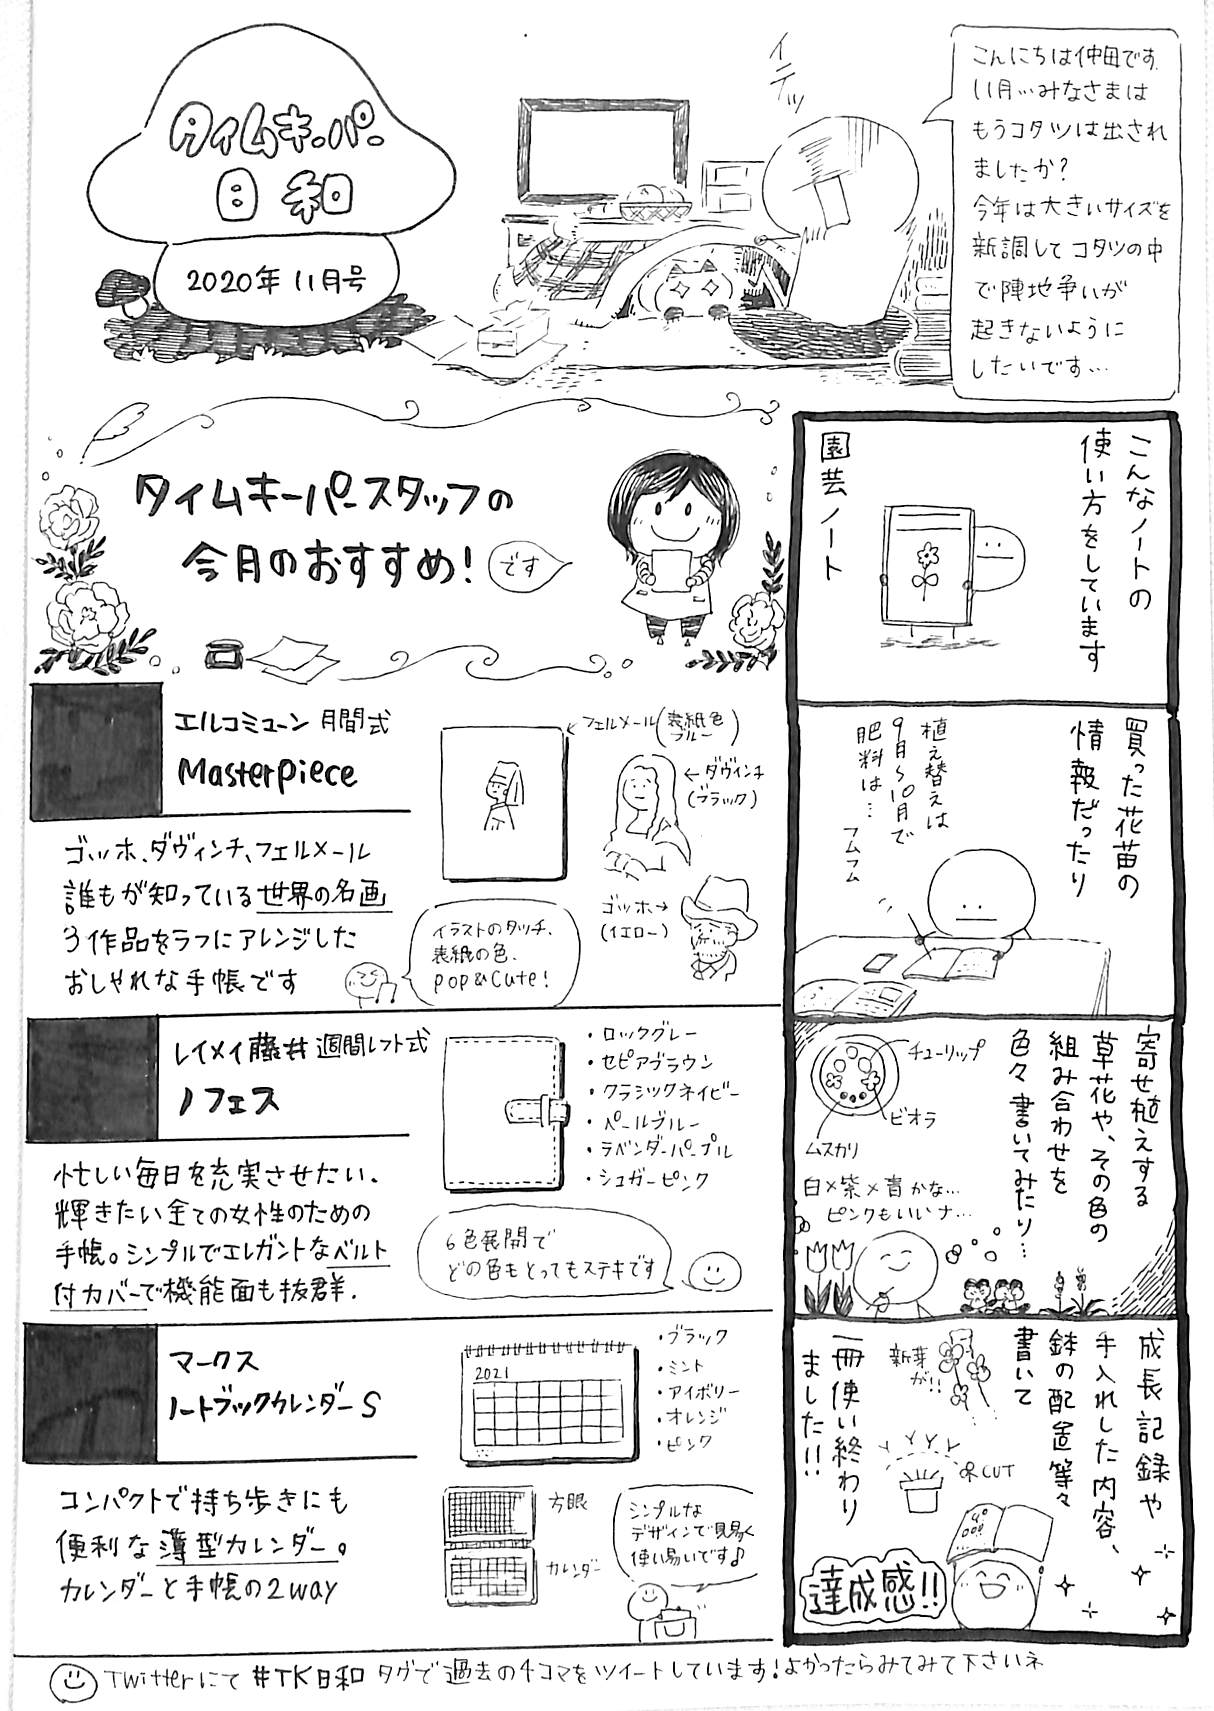 タイムキーパー
日和
2020年 11月号
イテッ
こんにちは仲田です。
11月…みなさまは
もうコタツは出され
ましたか？
今年は大きいサイズを
新調してコタツの中
で陣地争いが
起きないように
したいです…
タイムキーパースタッフの
今月のおすすめ！
です
エルコミューン 月間式
Masterpiece
フェルメール(表紙色
ブルー)
ダヴィンチ
(ブラック)
ゴッホ
(イエロー)
ゴッホ、ダヴィンチ、フェルメール
誰もが知っている世界の名画
3作品をラフにアレンジした
おしゃれな手帳です
イラストのタッチ、
表紙の色、
pop&cute!
レイメイ藤井 週間レフト式
ノフェス
・ロックグレー
・セピアブラウン
・クラシックネイビー
・ペールブルー
・ラベンダーパープル
・シュガーピンク
忙しい毎日を充実させたい、
輝きたい全ての女性のための
手帳。シンプルでエレガントなベルト
付カバーで機能面も抜群。
6色展開で
どの色もとってもステキです
マークス
ノートブックカレンダーS
2021
・ブラック
・ミント
・アイボリー
・オレンジ
・ピンク
コンパクトで持ち歩きにも
便利な薄型カレンダー。
カレンダーと手帳の2way
方眼
カレンダー
シンプルな
デザインで見易く
使い易いです♪
こんなノートの
使い方をしています
園芸ノート
買った花苗の
情報だったり
植え替えは
9月〜10月で
肥料は…
フムフム
寄せ植えする
草花や、その色の
組み合わせを
色々書いてみたり…
チューリップ
ビオラ
ムスカリ
白×紫×青かな…
ピンクもいいナ…
成長記録や
手入れした内容、
鉢の配置等々
書いて
新芽
が!!
CUT
一冊使い終わり
ました!!
達成感!!
Twitterにて #TK日和 タグで過去の4コマをツイートしています！よかったらみてみて下さいネ